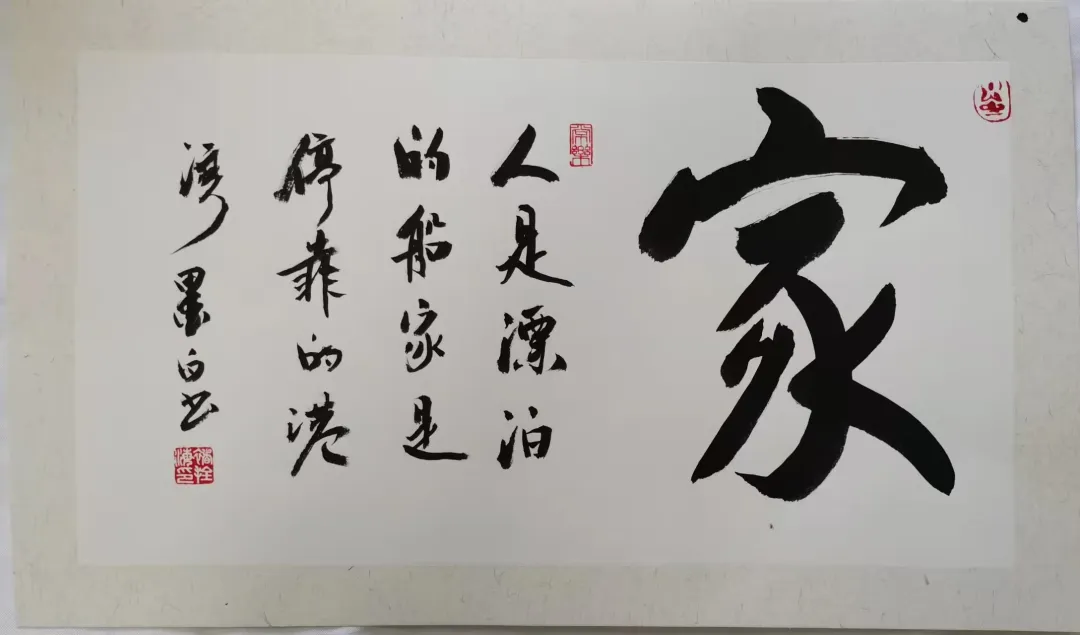 家
人是漂泊
的船家是
停靠的港
湾墨白书